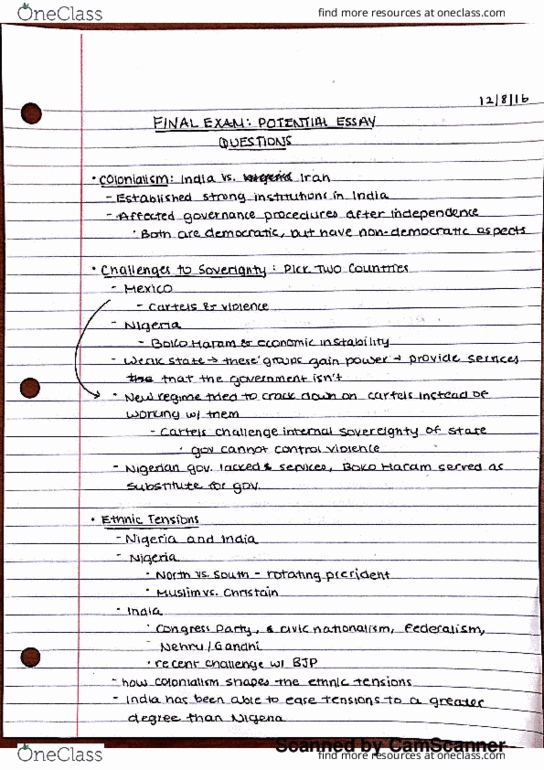 OneClass
find more resources at oneclass.com
12/8/16
FINAL EXAM: POTENTIAL ESSAY
QUESTIONS
• Colonialism: India vs. Iran
- Established strong institutions in India
- Affected governance procedures after independence
• Both are democratic, but have non-democratic aspects
• Challenges to Soverignty: Pick Two Countries
- Mexico
- Cartels & violence
- Nigeria
- Boko Haram & economic instability
- Weak state → these groups gain power → provide services
the that the government isn't
• New regime tried to crack down on cartels instead of
working w/ them
- Cartels challenge internal sovereignty of state
• gov cannot control violence
- Nigerian gov. lacked services, Boko Haram served as
substitute for gov.
• Ethnic Tensions
- Nigeria and India
- Nigeria
• North vs. South - rotating president
• Muslim vs. Christain
• India
• Congress Party, & civic nationalism, Federalism,
Nehru/Gandhi
• recent challenge w/ BJP
- how colonialism shapes the ethnic tensions
- India has been able to ease tensions to a greater
degree than Nigeria
Scanned by CamScanner
OneClass
find more resources at oneclass.com